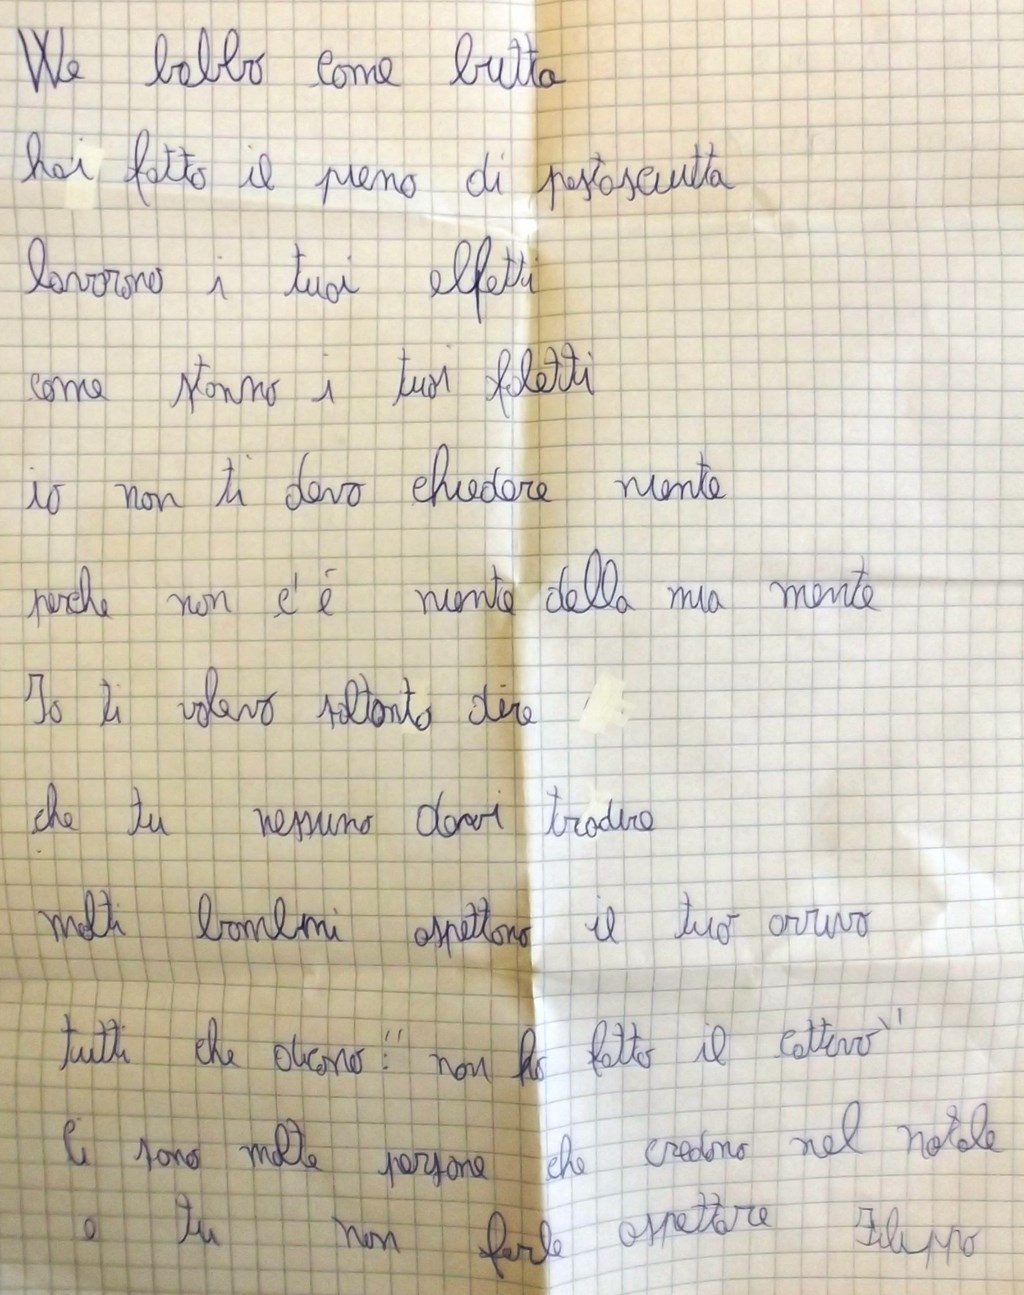 We babbo come butta
hai fatto il pieno di pastasciutta
lavorano i tuoi elfetti
come stanno i tuoi folletti
io non ti devo chiedere niente
perche non c'è niente della mia mente
Io ti volevo soltanto dire
che tu nessuno devi tradire
molti bambini aspettano il tuo arrivo
tutti che dicono: "non ho fatto il cattivo"
Ci sono molte persone che credono nel natale
e tu non farle aspettare Filippo